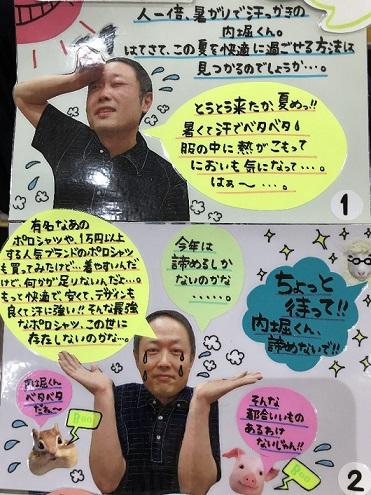 人一倍、暑がりで汗っかきの
内堀くん。
はてさて、この夏を快適に過ごせる方法は
見つかるのでしょうか…。
とうとう来たか夏めっ!!
暑くて汗でベタベタ
服の中に熱がこもって
においも気になって…。
はぁ〜…。
1
有名なあの
ポロシャツや、1万円以上
する人気ブランドのポロシャツ
も買ってみたけど…着やすいんだ
けど、何かが足りないんだよ…。
もっと快適で、安くて、デザインも
良くて汗に強い!!そんな最強
なポロシャツ、この世に
存在しないのかな…。
今年は
諦めるしか
ないのかな
……。
ちょっと
待って!!
内堀くん、
諦めないで!!
内堀くん
ベタベタ
だね〜
そんな
都合いいもの
あるわけ
ないじゃん!!
2